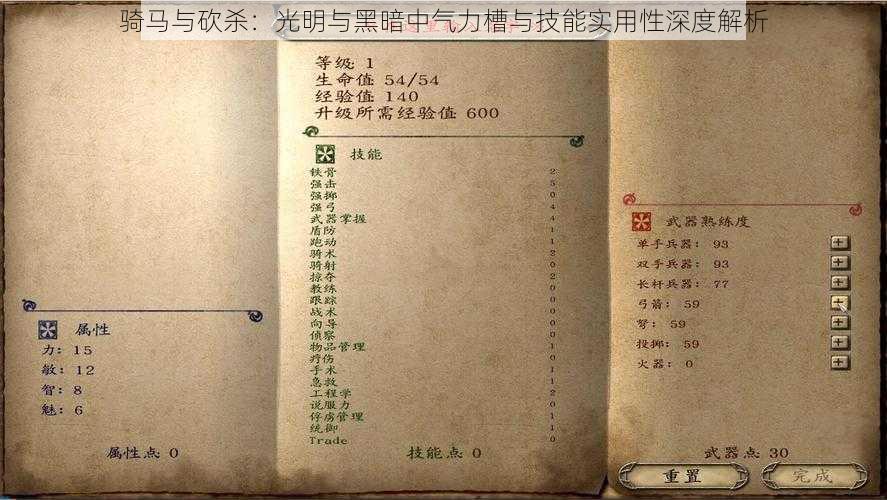 骑马与砍杀：光明与黑暗中气力槽与技能实用性深度解析
等级: 1
生命值: 54/54
经验值: 140
升级所需经验值: 600
技能
铁骨 2
强击 5
强掷 0
强弓 4
武器掌握 4
盾防 1
跑动 1
骑术 2
骑射 0
掠夺 2
教练 0
跟踪 0
战术 0
向导 0
侦察 0
物品管理 1
疗伤 0
手术 1
急救 1
工程学 2
说服力 0
俘虏管理 1
统御 1
Trade 0
属性
力: 15
敏: 12
智: 8
魅: 6
属性点: 0
技能点: 0
武器熟练度
单手兵器: 93
双手兵器: 93
长杆兵器: 77
弓箭: 59
弩: 59
投掷: 59
火器: 0
武器点: 30
重置
完成